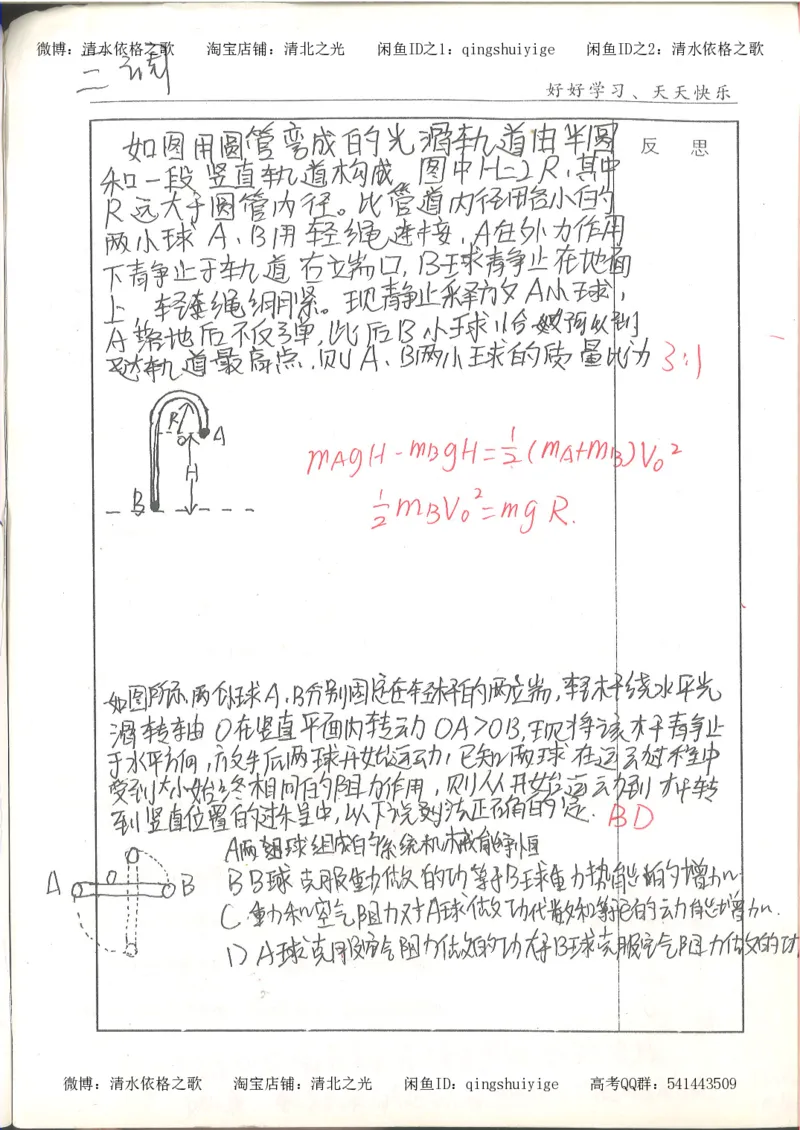 微博：清水依格之歌 淘宝店铺：清北之光 闲鱼ID之1：qingshuiyige 闲鱼ID之2：清水依格之歌
二调
好好学习、天天快乐
反 思
如图用圆管弯成的光滑轨道由半圆
和一段竖直轨道构成，图中H=2R，其中
R远大于圆管内径。比管道内径略小的
两小球A、B用轻绳连接，A在外力作用
下静止于轨道右端口，B球静止在地面
上，轻绳绷紧。现静止释放A小球，
A落地后不反弹，此后B小球恰好可以到
达轨道最高点，则A、B两小球的质量比为 3:1
R
O
A
H
B
mAgH-mBgH=½(mA+mB)V₀²
½mBV₀²=mgR.
如图所示，两个球A、B分别固定在轻杆的两端，轻杆绕水平光
滑转轴O在竖直平面内转动OA>OB，现将该杆静止
于水平方向，放手后两球开始运动，已知两球在运动过程中
受到大小始终相同的阻力作用，则从开始运动到杆转
到竖直位置的过程中，以下说法正确的是. BD
A两球组成的系统机械能守恒
A O B
B B球克服重力做的功等于B球重力势能的增加.
C.重力和空气阻力对A球做功代数和等于它的动能增加.
D A球克服空气阻力做的功大于B球克服空气阻力做的功
微博：清水依格之歌 淘宝店铺：清北之光 闲鱼ID：qingshuiyige 高考QQ群：541443509